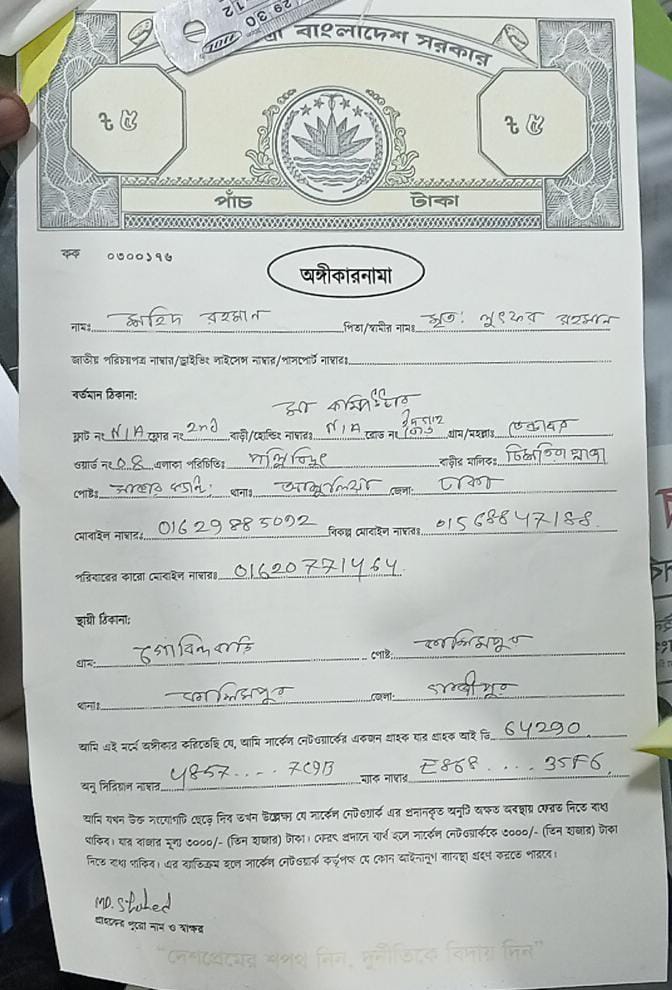 বাংলাদেশ সরকার
৳ ৫ ৳ ৫
পাঁচ টাকা
কক ০৩০০১৭৬
অঙ্গীকারনামা
নামঃ রহমান পিতা/স্বামীর নামঃ মৃত: লুৎফর রহমান
জাতীয় পরিচয়পত্র নাম্বার/ড্রাইভিং লাইসেন্স নাম্বার/পাসপোর্ট নাম্বারঃ
বর্তমান ঠিকানা:
মা কম্পিউটার
ফ্লাট নং N/A ফ্লোর নং 2nd বাড়ী/হোল্ডিং নাম্বারঃ N/A রোড নং গ্রাম/মহল্লাঃ
ওয়ার্ড নং 08 এলাকা পরিচিতিঃ পল্লিবিদ্যুৎ বাড়ীর মালিকঃ
পোষ্টঃ থানাঃ আশুলিয়া জেলা: ঢাকা
মোবাইল নাম্বারঃ 01629885092 বিকল্প মোবাইল নাম্বারঃ 01568847188
পরিবারের কারো মোবাইল নাম্বারঃ 01620771464
স্থায়ী ঠিকানা:
গ্রাম: গোবিন্দবাড়ি পোষ্ট: কাশিমপুর
থানাঃ কাশিমপুর জেলা: গাজীপুর
আমি এই মর্মে অঙ্গীকার করিতেছি যে, আমি সার্কেল নেটওয়ার্কের একজন গ্রাহক যার গ্রাহক আই ডি 64290
অনু সিরিয়াল নাম্বার 4857.... 7C9B ম্যাক নাম্বার E868.... 35F6
আমি যখন উক্ত সংযোগটি ছেড়ে দিব তখন উল্লেখ্য যে সার্কেল নেটওয়ার্ক এর প্রদানকৃত অনুটি অক্ষত অবস্থায় ফেরত দিতে বাধ্য
থাকিব। যার বাজার মূল্য ৩০০০/- (তিন হাজার) টাকা। ফেরৎ প্রদানে ব্যর্থ হলে সার্কেল নেটওয়ার্ককে ৩০০০/- (তিন হাজার) টাকা
দিতে বাধ্য থাকিব। এর ব্যতিক্রম হলে সার্কেল নেটওয়ার্ক কর্তৃপক্ষ যে কোন আইনানুগ ব্যবস্থা গ্রহণ করতে পারবে।
MD. Shahed
গ্রাহকের পুরো নাম ও স্বাক্ষর
"দেশপ্রেমের শপথ নিন, দুর্নীতিকে বিদায় দিন"